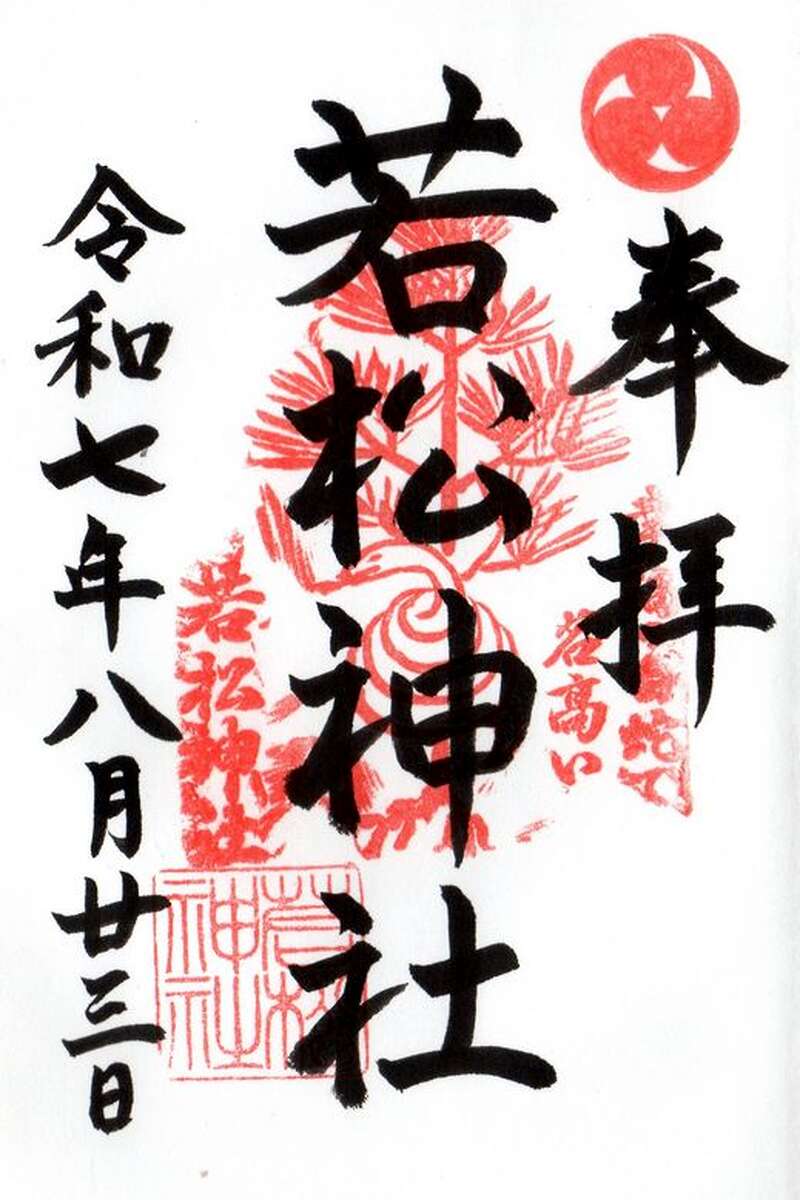 奉拝
名高い
若松神社
若松神社
若松神社
令和七年八月廿三日